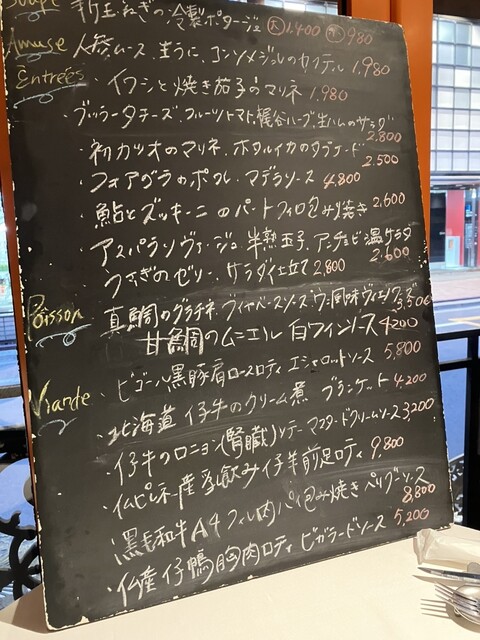 Soupe 新玉ねぎの冷製ポタージュ 大1,400 小980
Amuse 人参ムース、生うに、コンソメジュレのカクテル 1,980
Entrées ・イワシと焼き茄子のマリネ 1,980
・ブッラータチーズ、フルーツトマト、梶谷ハーブ、生ハムのサラダ 2,800
・初カツオのマリネ、ホタルイカのタプナード 2,500
・フォアグラのポワレ、マデラソース 4,800
・鮎とズッキーニのパートフィロ包み焼き 2,600
・アスパラソヴァージュ、半熟玉子、アンチョビ温サラダ 2,600
うさぎのゼリー、サラダ仕立て 2,800
Poisson 真鯛のグラチネ、ブイヤベースソース 風味 3,500
甘鯛のムニエル 白ワインソース 4,200
Viande ・ビゴール黒豚肩ロースロティ エシャロットソース 5,800
・北海道 仔牛のクリーム煮 ブランケット 4,200
・仔牛のロニョン(腎臓)ソテー マスタードクリームソース 3,200
・仏ピレネー産乳飲み仔羊前足ロティ 9,800
・黒毛和牛A4フィレ肉パイ包み焼き ペリグーソース 8,800
・仏産仔鴨胸肉ロティ ビガラードソース 5,200